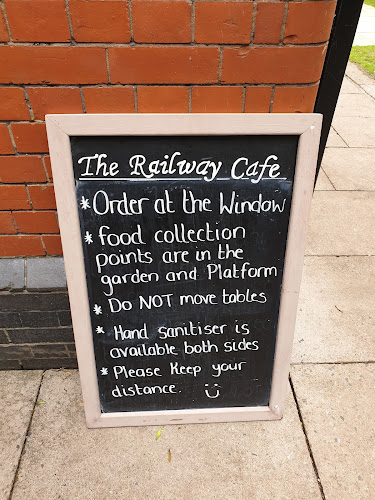 The Railway Cafe
* Order at the Window
* food collection
points are in the
garden and Platform
* Do NOT move tables
* Hand sanitiser is
available both sides
* Please Keep your
distance.